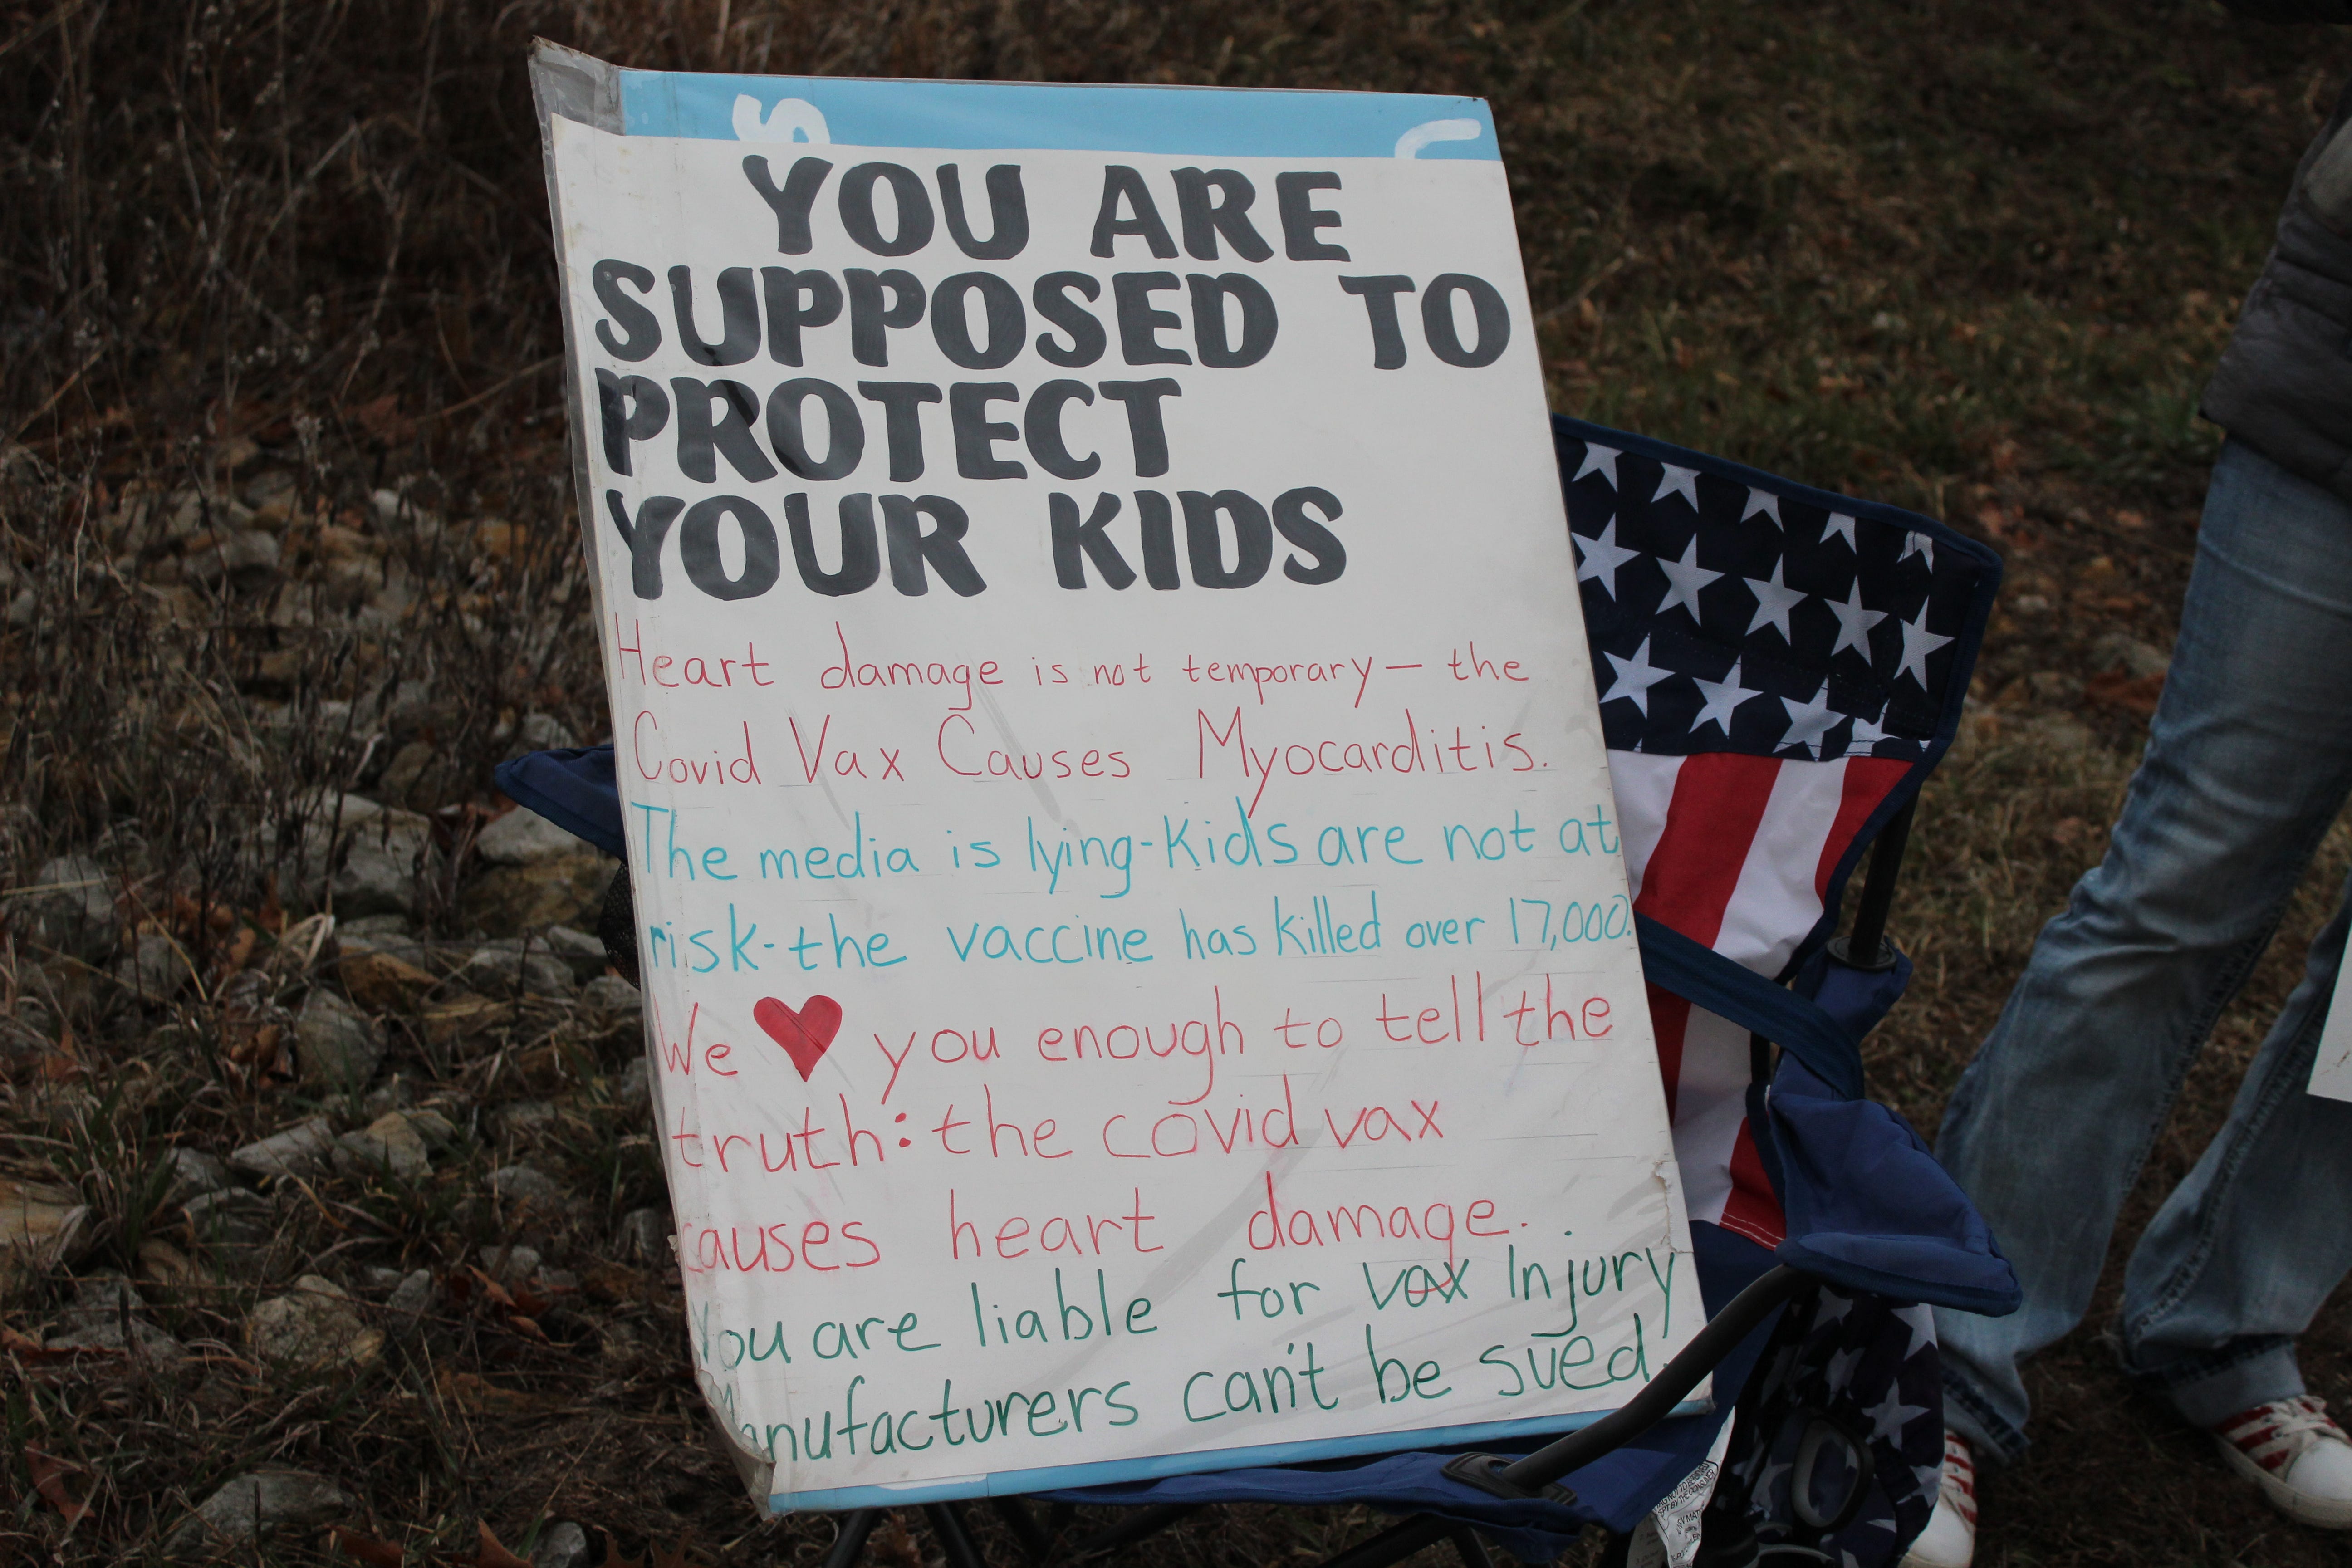 YOU ARE
SUPPOSED TO
PROTECT
YOUR KIDS
Heart damage is not temporary — the
Covid Vax Causes Myocarditis.
The media is lying - Kids are not at
risk - the vaccine has killed over 17,000.
We ♥ you enough to tell the
truth: the covid vax
causes heart damage.
You are liable for vax Injury
Manufacturers can't be sued.